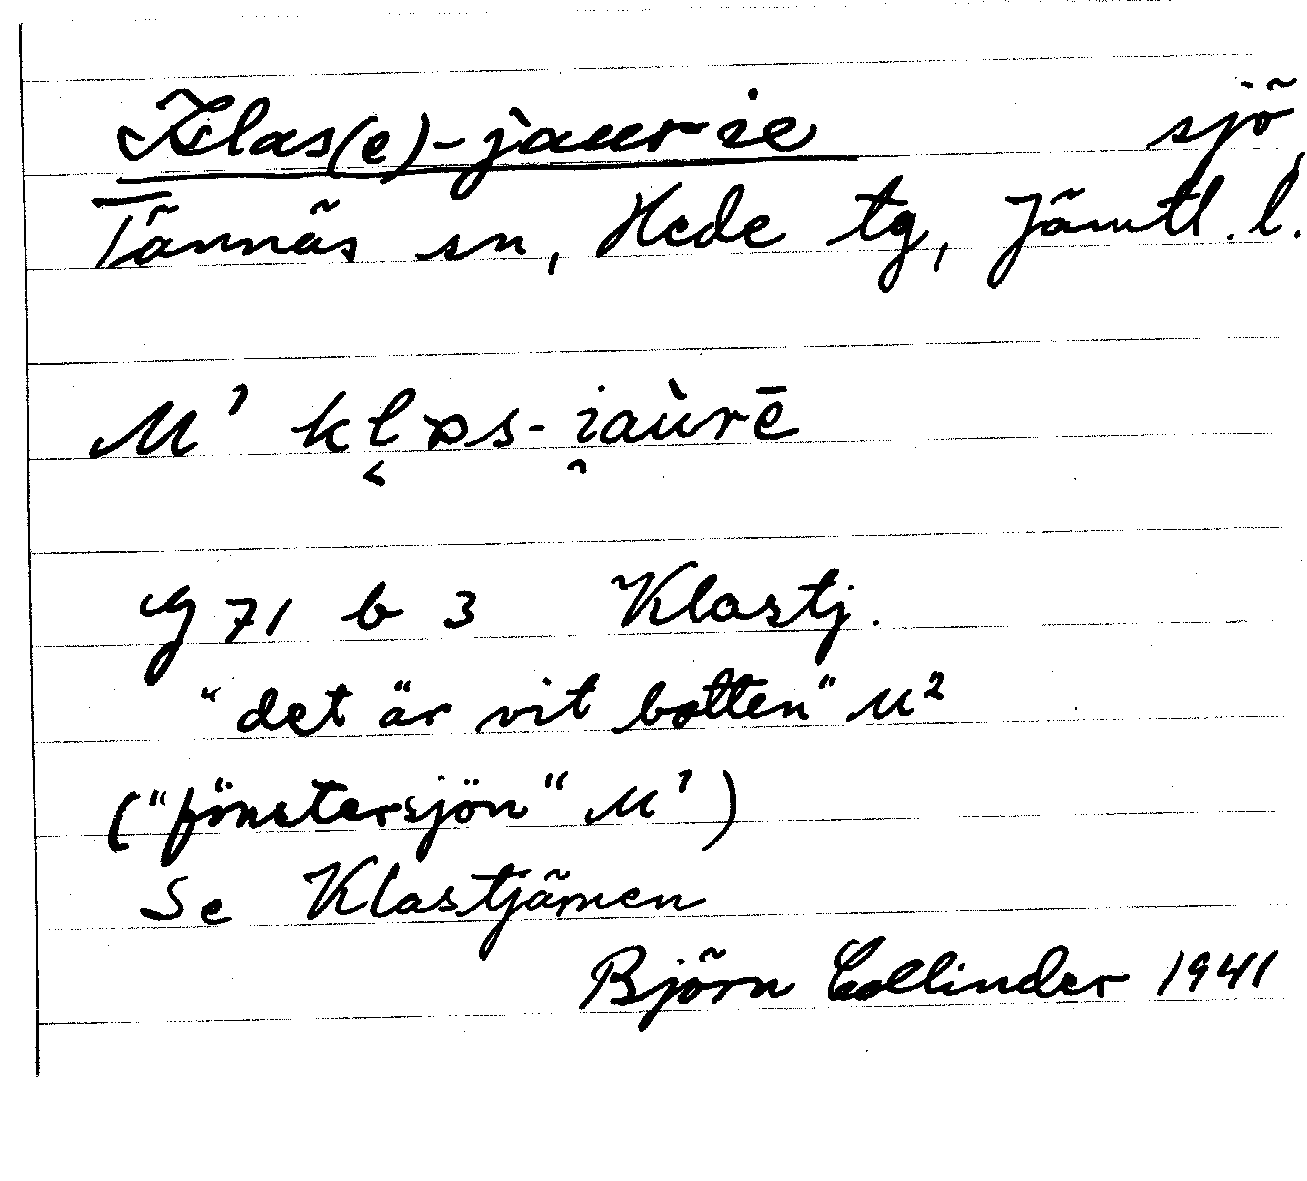 Klas(e)-jaur-ie sjö
Tännäs sn, Hede tg, Jämtl. l.
M¹ kl̬ɒs-i̯au̇rē
G 71 b 3 Klastj.
"det är vit botten" M²
("fönstersjön" M¹)
Se Klastjärnen
Björn Collinder 1941